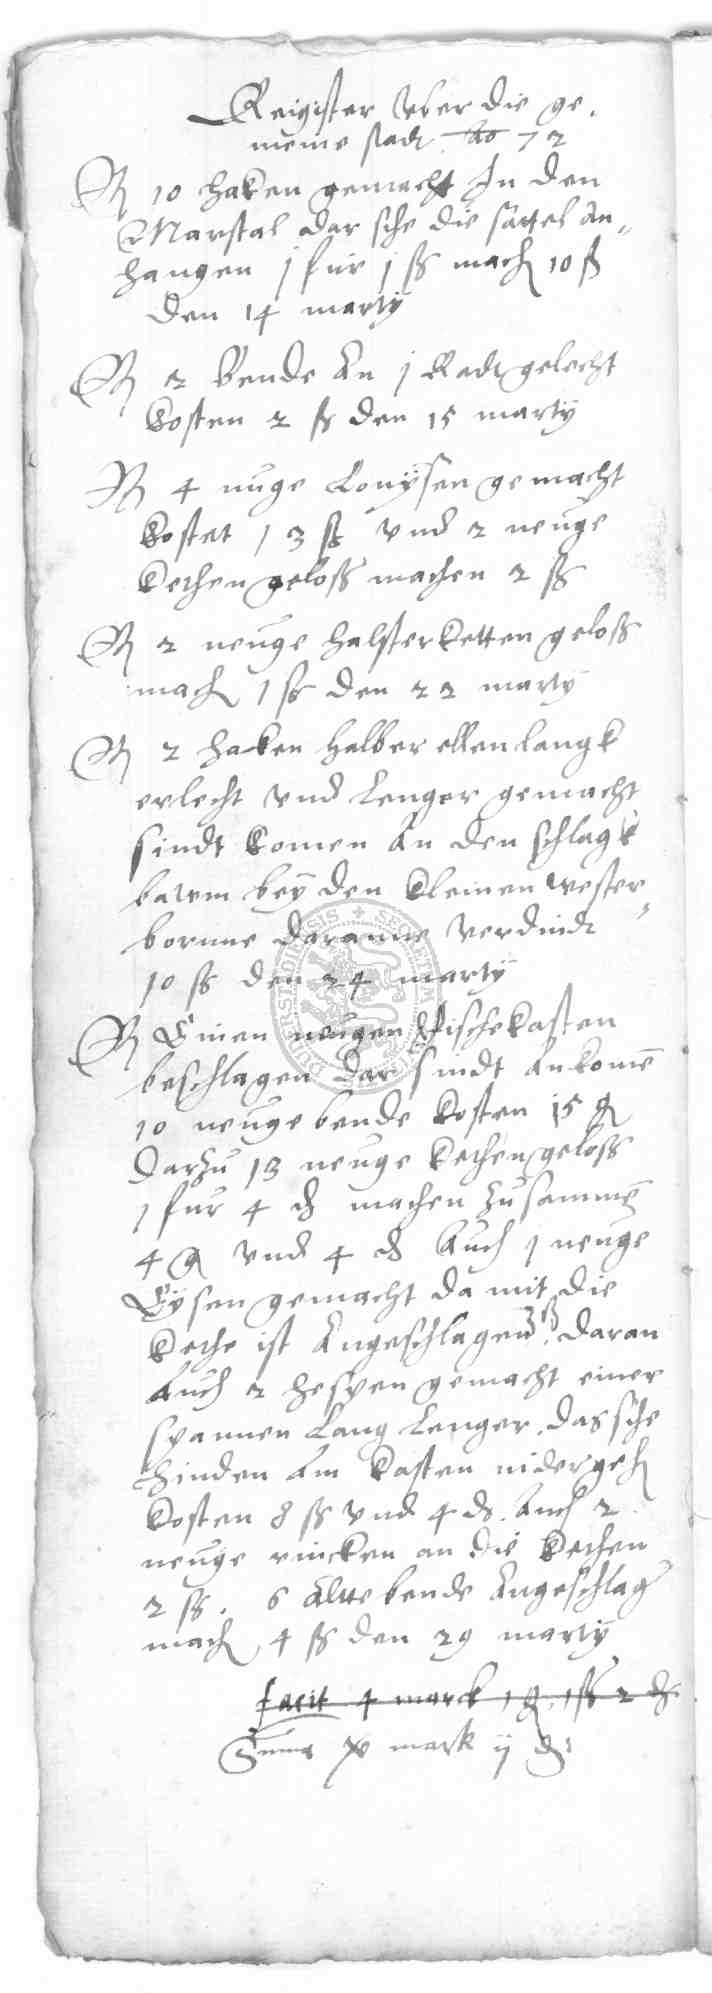 Reigister vber die ge-
meine stadt Ao 72
R 10 haken gemacht In den
Marstal dar sche die sattel an-
hangen j fur j ß mach 10 ß
den 14 marty
R 2 bende an j Radt gelecht
kosten 2 ß den 15 marty
R 4 nuge gemacht
kostet 13 ß vnd 2 neuge
kethen geloß machen 2 ß
R 2 neuge halfterketten geloß
mach 1 ß den 22 marty
R 2 haken halber ellen langk
erlecht vnd lenger gemacht
sindt komen an den schlagk
bawm beÿ den kleinen wester-
borne daranne verdindt
10 ß den 24 marty
R Einen neugen fischekasten
beschlagen dar sindt ankomen
10 neuge bende kosten 15 g
darzu 13 neuge kethen geloß
1 fur 4 d machen zusammen
4 g vnd 4 d Auch 1 neuge
Eÿsen gemacht da mit die
kethe ist angeschlagen 3 ß daran
Auch 2 hespen gemacht einer
spannen lang lenger das sche
hinden am kasten nider geh
kosten 8 ß vnd 4 d. Auch 2
neuge rincken an die kethen
2 ß. 6 altte bende angeschlag
mach 4 ß den 29 marty
facit 4 marck 1 g 1 ß 2 d
Suma mark ij